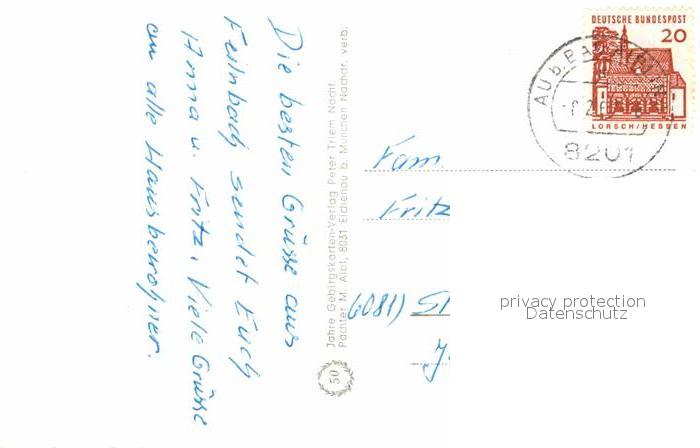 Die besten Grüsse aus
Feilnbach sendet Euch
Anna u. Fritz. Viele Grüsse
an alle Hausbewohner.
50 Jahre Gebirgskarten-Verlag Peter Triem Nachf.
Pächter M. Aibl, 8031 Eichenau b. München Nachdr. verb.
DEUTSCHE BUNDESPOST
20
LORSCH/HESSEN
AU b. BAD AIBLING
8201
Fam.
Fritz
(6081) St
privacy protection
Datenschutz